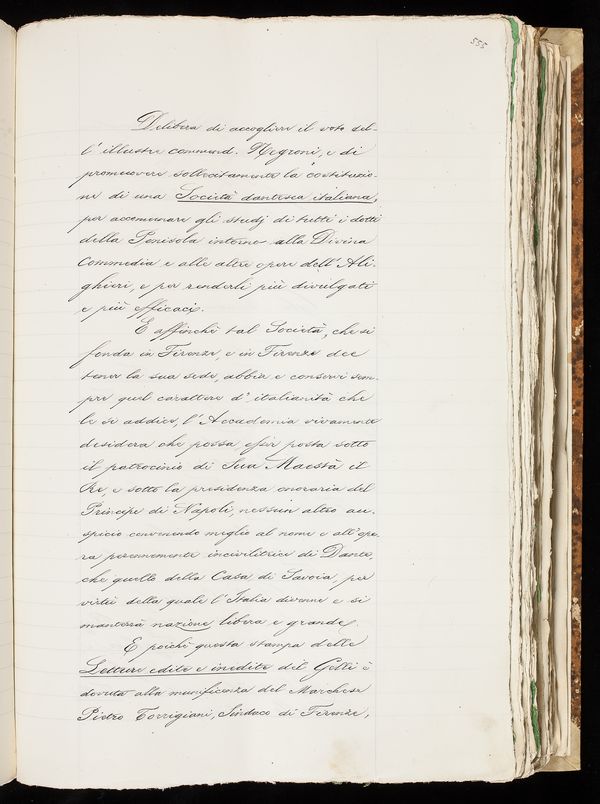 555
Delibera di accogliere il voto del-
l'illustre command. Negroni, e di
promuovere sollecitamente la costituzio-
ne di una Società dantesca italiana,
per accomunare gli studj di tutti i dotti
della Penisola intorno alla Divina
Commedia e alle altre opere dell'Ali-
ghieri, e per renderli più divulgati
e più efficaci.
E affinchè tal Società, che si
fonda in Firenze, e in Firenze dee
tener la sua sede, abbia e conservi sem-
pre quel carattere d'italianità che
le se addice, l'Accademia vivamente
desidera che possa esser posta sotto
il patrocinio di Sua Maestà il
Re, e sotto la presidenza onoraria del
Principe di Napoli, nessun altro au-
spicio convenendo meglio al nome e all'ope-
ra perennemente incivilitrice di Dante,
che quello della Casa di Savoia, per
virtù della quale l'Italia divenne e si
manterrà nazione libera e grande.
E poichè questa stampa delle
Letture edite e inedite del Gelli è
dovuta alla munificenza del Marchese
Pietro Torrigiani, Sindaco di Firenze,